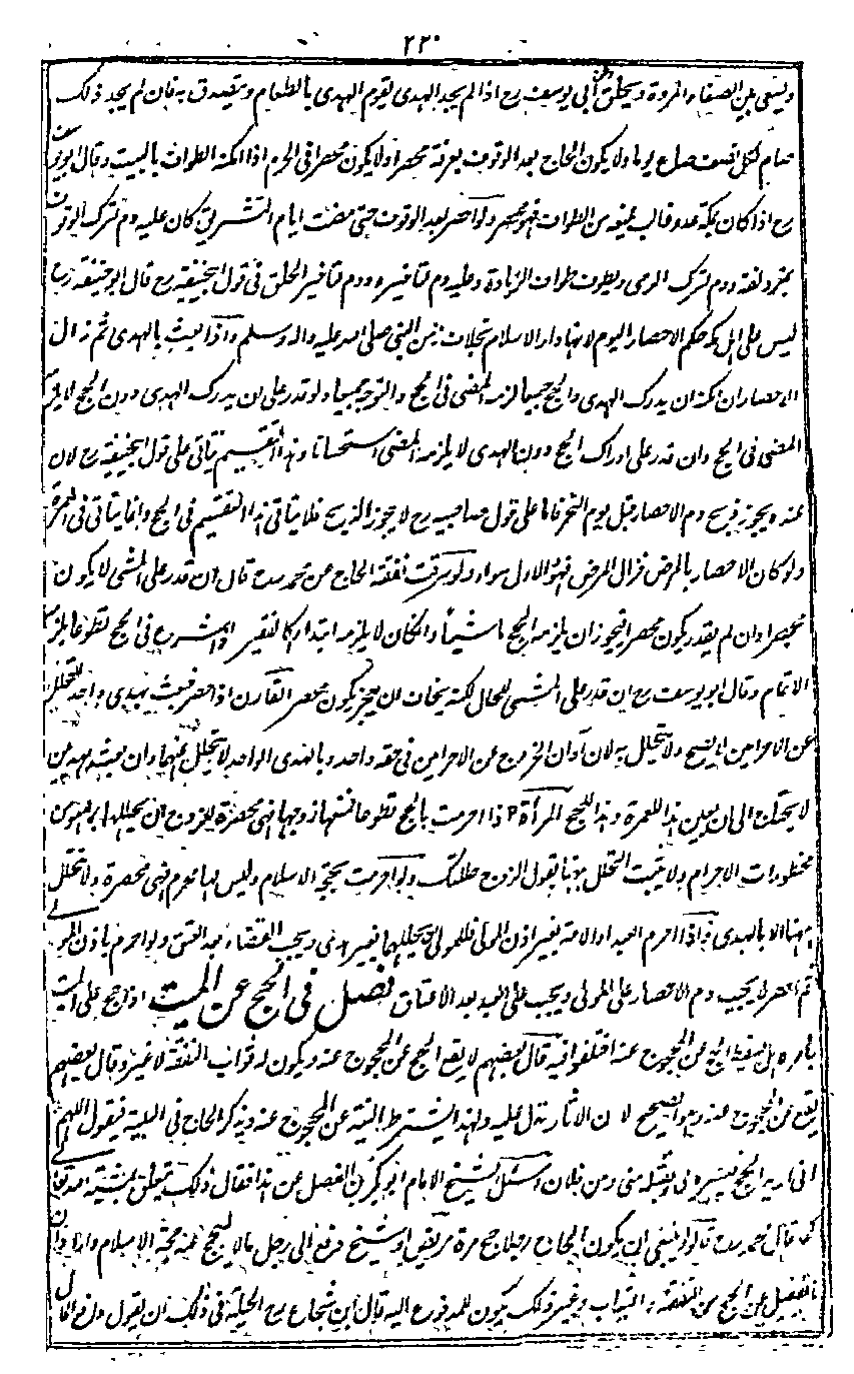 ٢٢٠
ويسعى بين الصفا والمروة ويحلق وعن أبي يوسف رح اذا لم يجد الهدى يقوم الهدى بالطعام ويتصدق به فان لم يجد ذلك
صام لكل نصف صاع يوما ولا يكون الحاج بعد الوقوف بعرفة محصرا ولا يكون محصرا في الحرم اذا امكنه الطواف بالبيت وقال ابو يوسف
رح اذا كان بمكة عدو غالب يمنعه من الطواف فهو محصر ولو احصر بعد الوقوف حتى مضت ايام التشريق كان عليه دم لترك الوقوف
بمزدلفة ودم لترك الرمى ويطوف طواف الزيادة وعليه دم لتاخيره ودم لتاخير الحلق في قول ابيحنيفة رح قال ابو حنيفة رح
ليس على اهل مكة حكم الاحصار اليوم لانها دار الاسلام بخلاف زمن النبي صلى الله عليه واله وسلم واذا بعث بالهدى ثم زال
الاحصار ان امكنه ان يدرك الهدى والحج جميعا لزمه المضى في الحج والتوجه جميعا ولو قدر على ان يدرك الهدى دون الحج لا
المضى في الحج وان قدر على ادراك الحج دون الهدى لا يلزمه المضى استحسانا وهذا التقسيم يتاتى على قول ابيحنيفة رح لان
عنده ويجوز ذبح دم الاحصار قبل يوم النحر فاما على قول صاحبيه رح لا يجوز الذبح فلا يتاتى هذا التقسيم في الحج وانما يتاتى في العمرة
ولو كان الاحصار بالمرض فزال المرض فهو والاول سواء ولو سرقت نفقة الحاج عن محمد رح قال ان قدر على المشى لا يكون
محصرا وان لم يقدر يكون محصرا فيجوز ان يلزمه الحج ماشيا وان كان لا يلزمه ابتداء كالفقير اذا شرع في الحج تطوعا يلزمه
الاتمام وقال ابو يوسف رح ان قدر على المشى للحال لكنه يخاف ان يعجز يكون محصرا القارن اذا احصر فبعث بهدى واحد للتحلل
عن الاحرامين لا يصح ولا يتحلل به لان اوان الخروج عن الاحرامين في حقه واحد وبالهدى الواحد لا يتحلل عنهما وان بعث بهديين
لا يحتاج الى ان يعين هذا للعمرة وهذا للحج المرأة اذا احرمت بالحج تطوعا فمنعها زوجها فهى محصرة للزوج ان يحللها
محظورات الاحرام ولا يثبت التحلل ههنا بقول الزوج حللتك ولو احرمت بحجة الاسلام وليس لها محرم فهى محصرة ولا تتحلل
ههنا الا بالهدى واذا احرم العبد او الامة بغير اذن المولى فللمولى ان يحللهما بغير هدى ويجب القضاء بعد العتق ولو احرم باذن المولى
ثم احصر لا يجب دم الاحصار على المولى ويجب على العبد بعد الاعتاق فصل في الحج عن الميت اذا حج على الميت
بامره عن المحجوج عنه اختلفوا فيه قال بعضهم لا يقع الحج عن المحجوج عنه ويكون له ثواب النفقة لا غير وقال بعضهم
يقع عن المحجوج عنه وهو الصحيح لان الآثار تدل عليه ولهذا يشترط النية عن المحجوج عنه ويذكر الحاج في التلبية فيقول اللهم
انى اريد الحج فيسره لى وتقبله منى ومن فلان وسئل الشيخ الامام ابو بكر بن الفضل عن هذا فقال ذلك يتعلق بمشيئة الله تعالى
كما قال محمد رح قالوا وينبغى ان يكون الحاج رجلا حج مرة مريض او شيخ دفع الى رجل مالا ليحج عنه حجة الاسلام واراد ان
ما يفضل عن الحج من النفقة والثياب وغير ذلك يكون للمدفوع اليه قال ابن شجاع رح الحيلة في ذلك ان يقول دافع المال